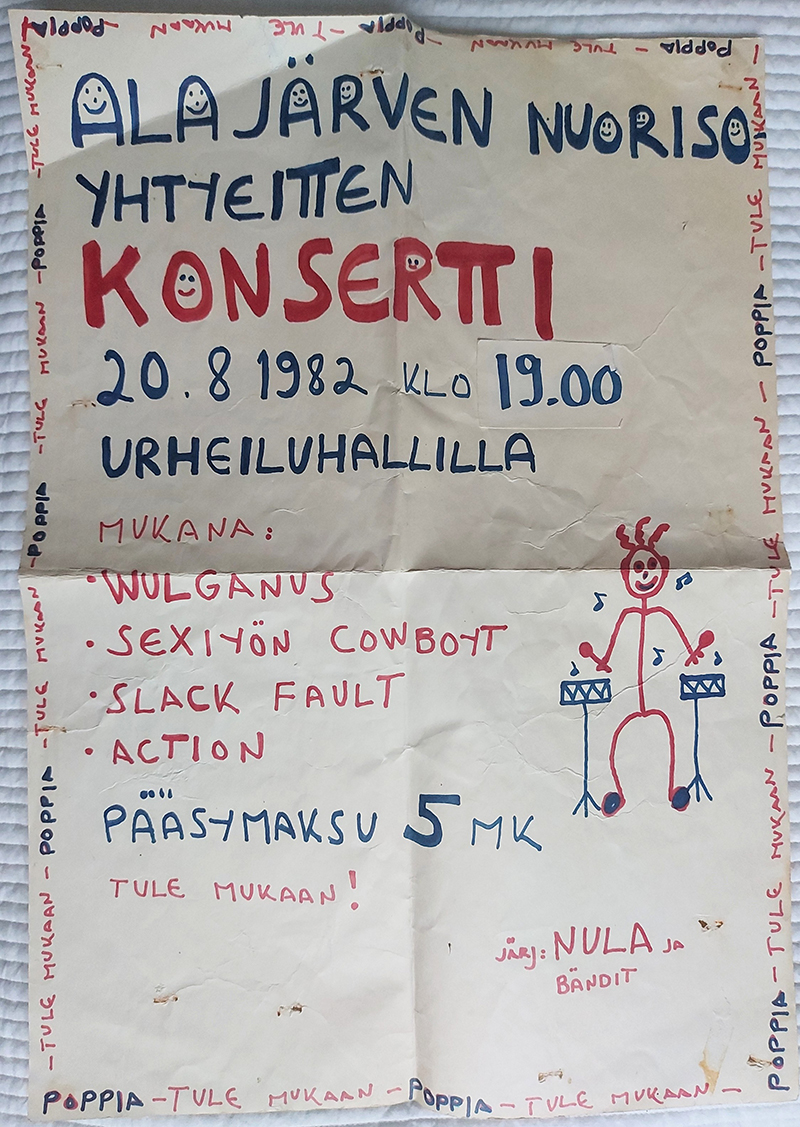 POPPIA - TULE MUKAAN - POPPIA - TULE MUKAAN - POPPIA
ALAJÄRVEN NUORISO
YHTYEITTEN
KONSERTTI
20.8 1982 KLO 19.00
URHEILUHALLILLA
MUKANA:
• WULGANUS
• SEXIYÖN COWBOYT
• SLACK FAULT
• ACTION
PÄÄSYMAKSU 5 MK
TULE MUKAAN!
JÄRJ: NULA JA
BÄNDIT
- TULE MUKAAN - POPPIA - TULE MUKAAN - POPPIA - TULE MUKAAN - POPPIA - TULE MUKAAN
POPPIA - TULE MUKAAN - POPPIA - TULE MUKAAN - POPPIA - TULE MUKAAN -
POPPIA - TULE MUKAAN - POPPIA - TULE MUKAAN -